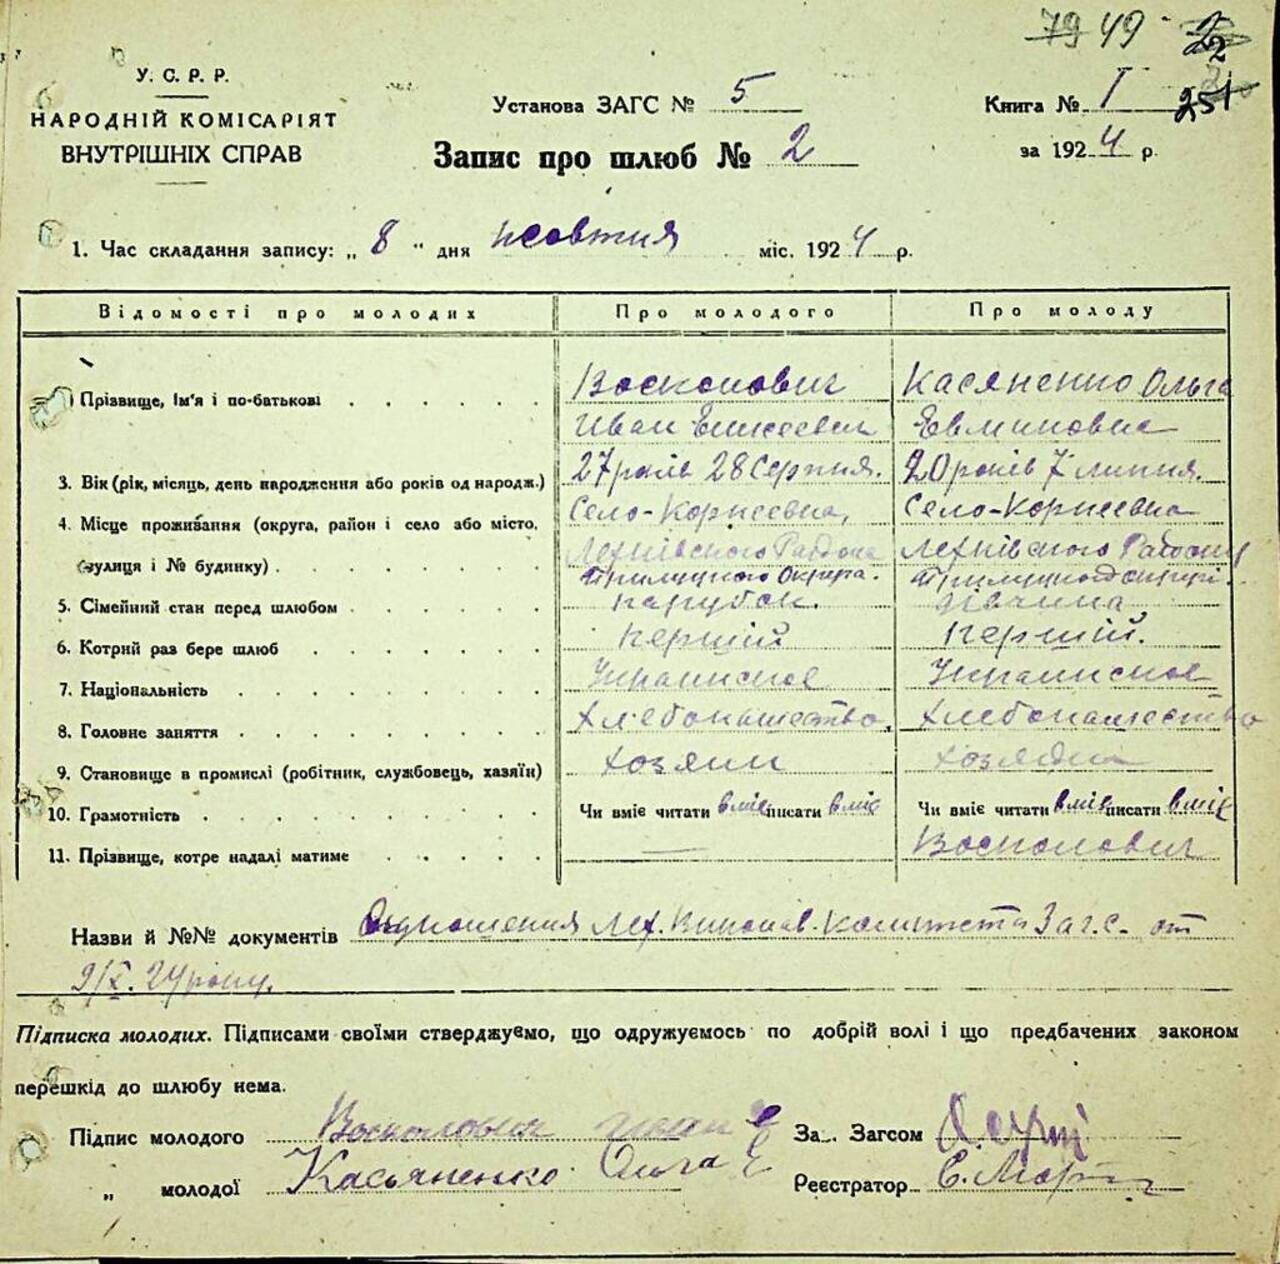 79 49 22
У. С. Р. Р.
НАРОДНІЙ КОМІСАРІЯТ
ВНУТРІШНІХ СПРАВ
Установа ЗАГС № 5
Запис про шлюб № 2
Книга № I 251
за 1924 р.
1. Час складання запису: „ 8 " дня жовтня міс. 1924 р.
Відомості про молодих Про молодого Про молоду
Прізвище, Ім'я і по-батькові Восколович Касяненко Ольга
Иван Елисеевич
3. Вік (рік, місяць, день народження або років од народж.) 27 років 28 Серпня. 20 років 7 липня.
4. Місце проживання (округа, район і село або місто, Село-Корнеевна, Село-Корнеевна
вулиця і № будинку) Лехнівского Района Лехнівского Району
Прилуцкого Округа. Прилуцкого округі.
5. Сімейний стан перед шлюбом парубок. дівчина,
6. Котрий раз бере шлюб першій першій.
7. Національність Украинское Украинское
8. Головне заняття хлебопашество, хлебопашество
9. Становище в промислі (робітник, службовець, хазяїн) хозяин хозяйка
10. Грамотність Чи вміє читати вміє писати вміє Чи вміє читати вміє писати вміє
11. Прізвище, котре надалі матиме — Восколович
Назви й №№ документів Отношения Лех. Виконав. Комитета Загс. от
9/X. 24 року.
Підписка молодих. Підписами своїми стверджуємо, що одружуємось по добрій волі і що предбачених законом
перешкід до шлюбу нема.
Підпис молодого Восколович Иван Е За.. Загсом
„ молодої Касьяненко Ольга Е Реєстратор С.